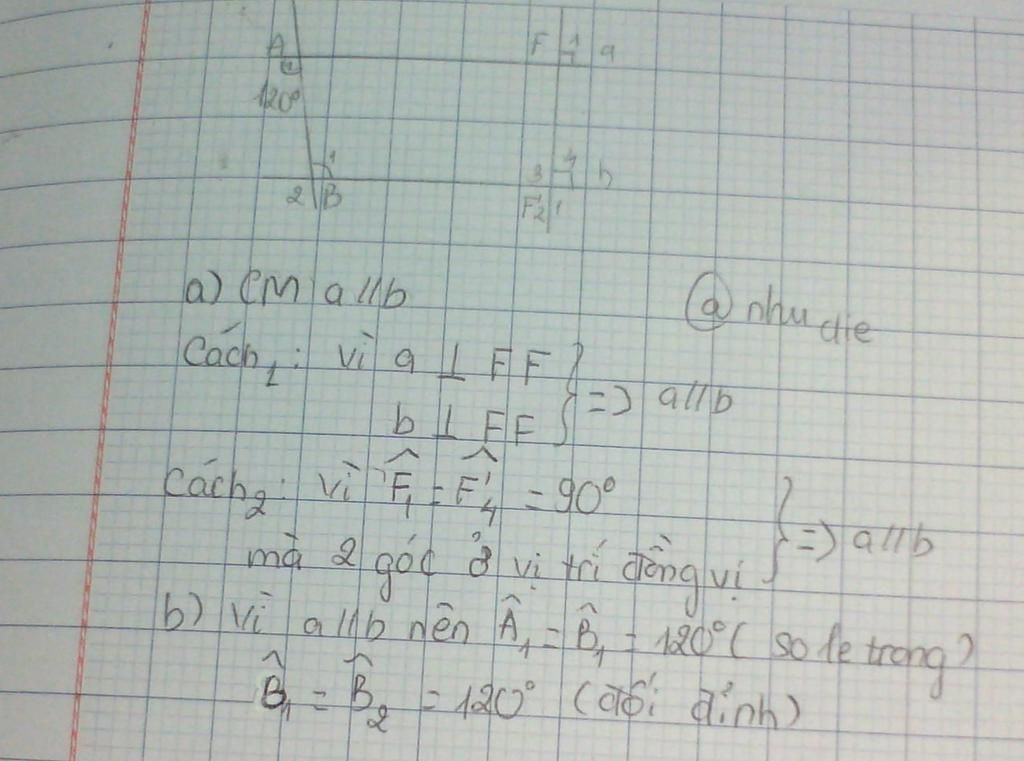 A F 1 a
120°
1 3 4 b
2 B F' 2 1
a) CM a // b
@ nhu die
Cách 1: vì a ⊥ FF
b ⊥ FF } => a // b
Cách 2: vì F̂1 = F̂'4 = 90°
mà 2 góc ở vị trí đồng vị } => a // b
b) Vì a // b nên Â1 = B̂1 = 120° ( so le trong )
B̂1 = B̂2 = 120° ( đối đỉnh )